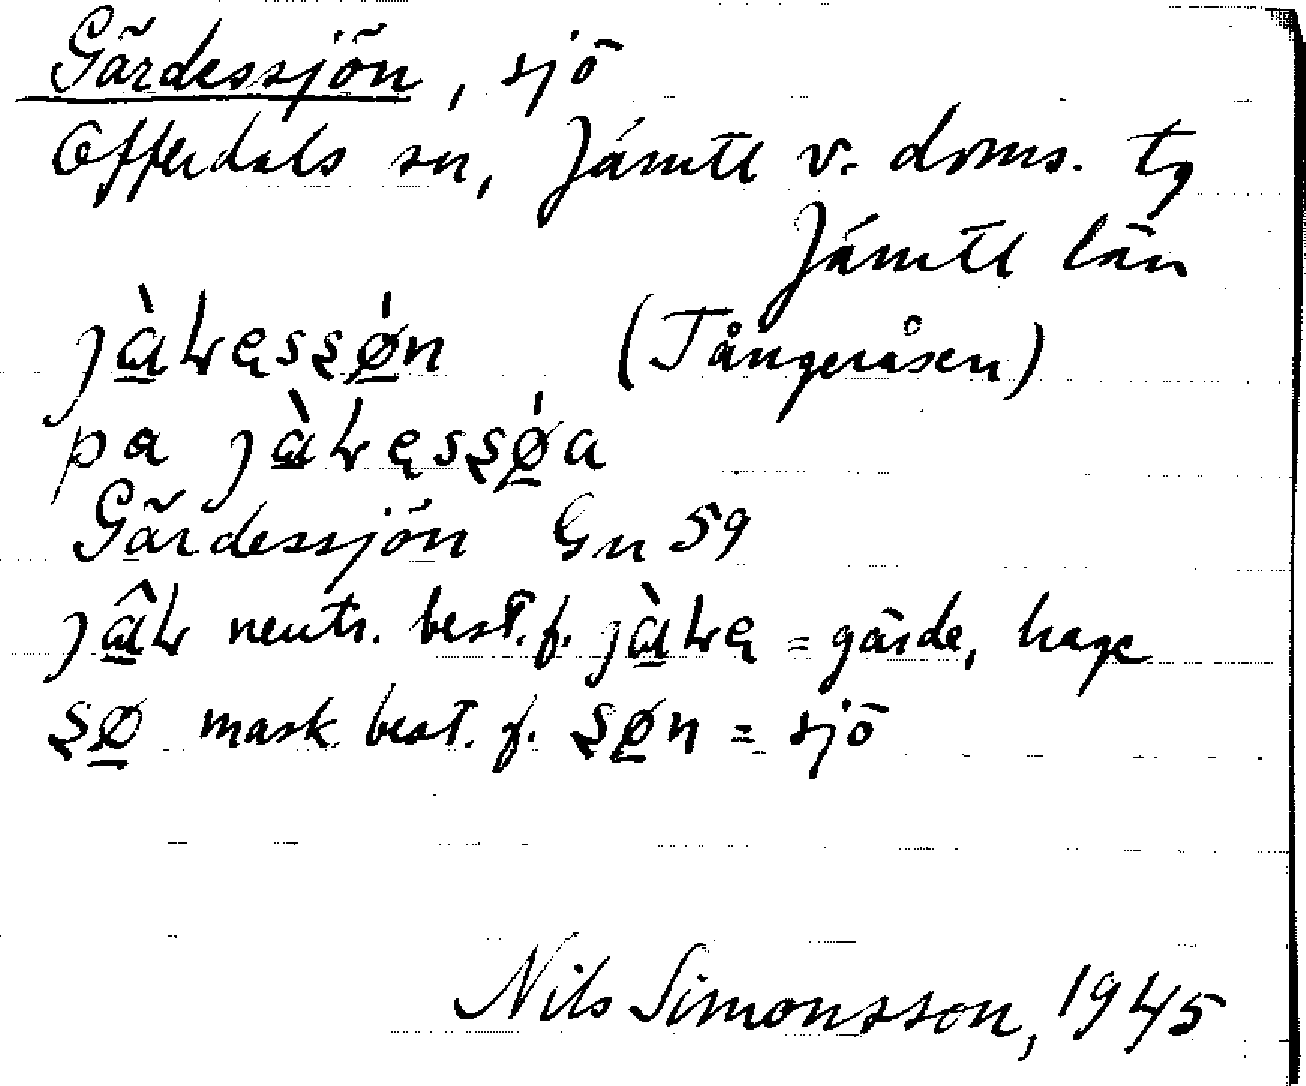 Gärdessjön, sjö
Offerdals sn, Jämtl v. doms. tg
Jämtl län
jàɽęsʂǿn (Tångeråsen)
pa jàɽęsʂǿa
Gärdessjön Gn 59
jâɽ neutr. best. f. jàɽę = gärde, hage
ʂø mask best. f. ʂøn = sjö
Nils Simonsson, 1945